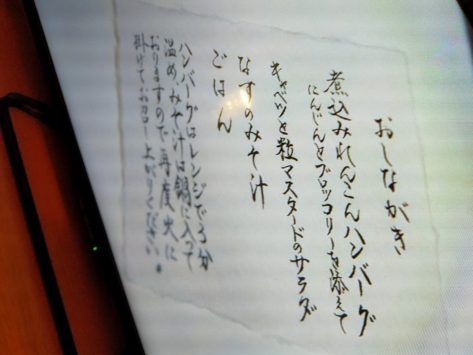 おしながき
煮込みれんこんハンバーグ
にんじんとブロッコリーを添えて
キャベツと粒マスタードのサラダ
なすのみそ汁
ごはん
ハンバーグはレンジで3分
温め みそ汁は鍋に入って
おりますので再度火に
掛けてお召し上がりください。